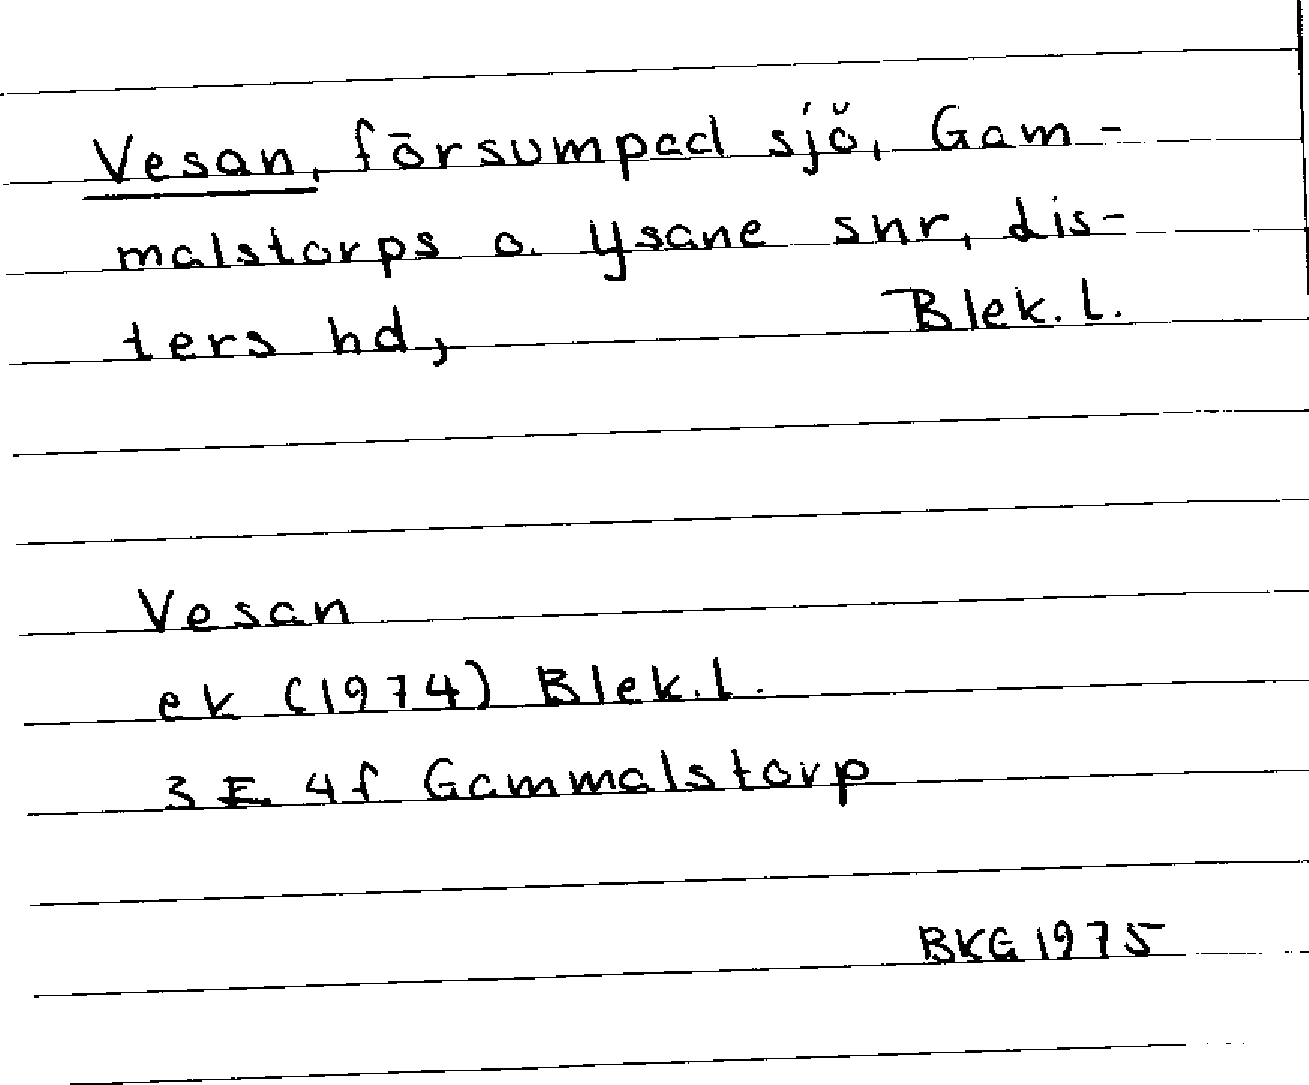 Vesan, försumpad sjö, Gam-
malstorps o. Ysane snr, Lis-
ters hd, Blek. l.
Vesan
ek (1974) Blek. l.
3 E 4f Gammalstorp
BKG 1975